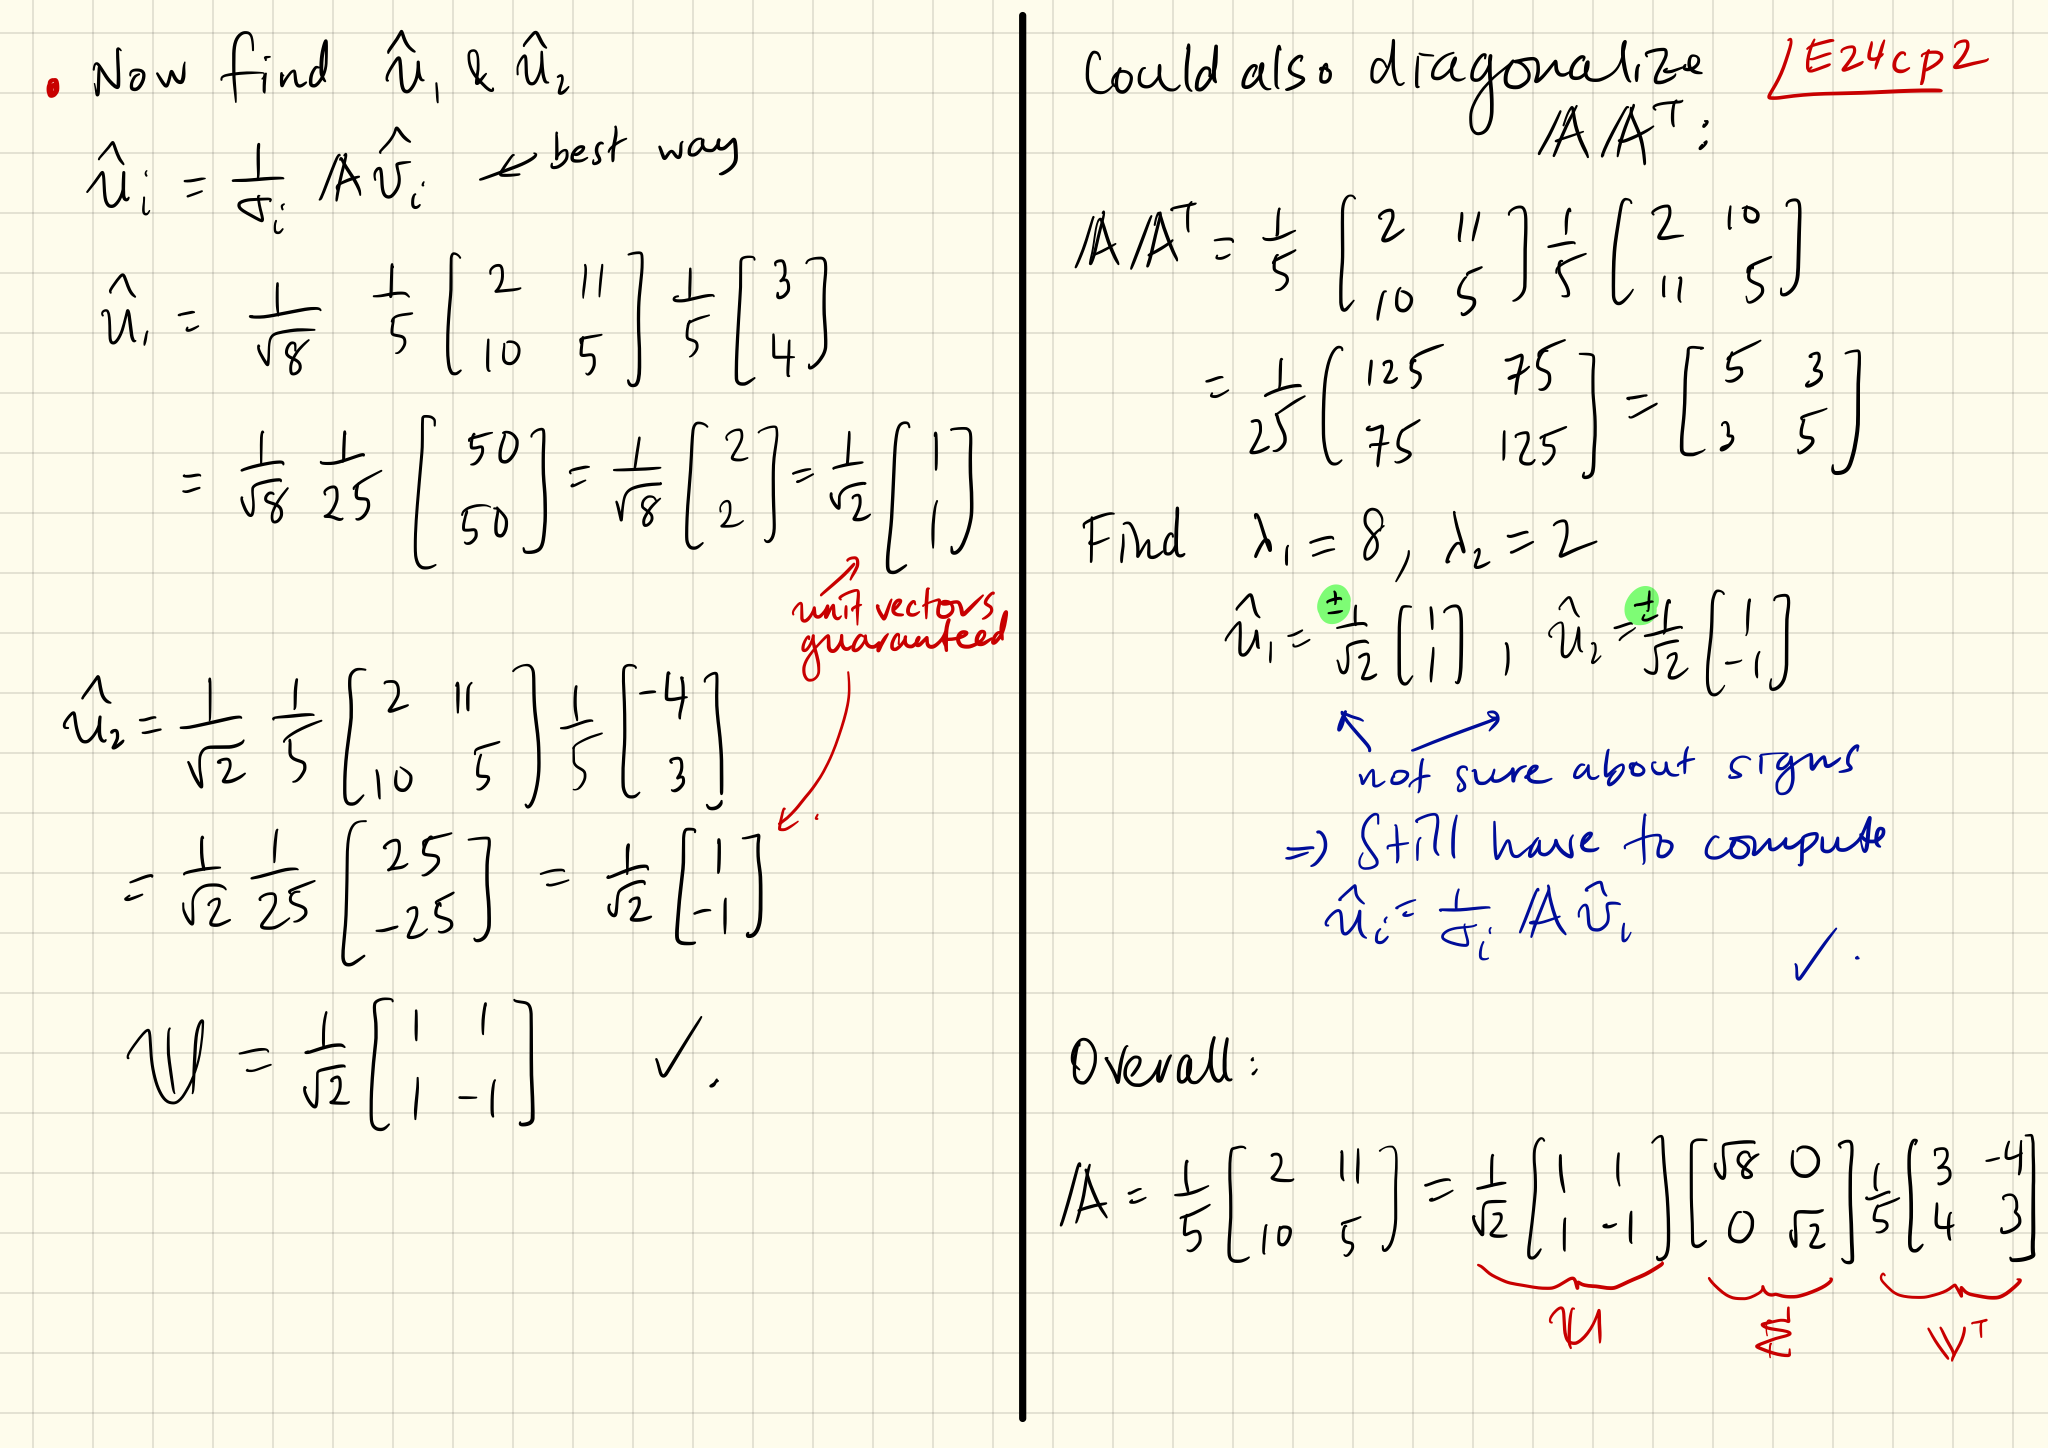 • Now find û₁ & û₂
ûᵢ = 1/σᵢ 𝔸 v̂ᵢ ← best way
û₁ = 1/√8 1/5 [2 11; 10 5] 1/5 [3; 4]
= 1/√8 1/25 [50; 50] = 1/√8 [2; 2] = 1/√2 [1; 1]
unit vectors
guaranteed
û₂ = 1/√2 1/5 [2 11; 10 5] 1/5 [-4; 3]
= 1/√2 1/25 [25; -25] = 1/√2 [1; -1]
𝕌 = 1/√2 [1 1; 1 -1] ✓.
Could also diagonalize
E24cp2
𝔸𝔸ᵀ:
𝔸𝔸ᵀ = 1/5 [2 11; 10 5] 1/5 [2 10; 11 5]
= 1/25 [125 75; 75 125] = [5 3; 3 5]
Find λ₁ = 8, λ₂ = 2
û₁ = ± 1/√2 [1; 1], û₂ = ± 1/√2 [1; -1]
not sure about signs
⇒ Still have to compute
ûᵢ = 1/σᵢ 𝔸 v̂ᵢ
✓.
Overall:
𝔸 = 1/5 [2 11; 10 5] = 1/√2 [1 1; 1 -1] [√8 0; 0 √2] 1/5 [3 -4; 4 3]
𝕌 Σ 𝕍ᵀ